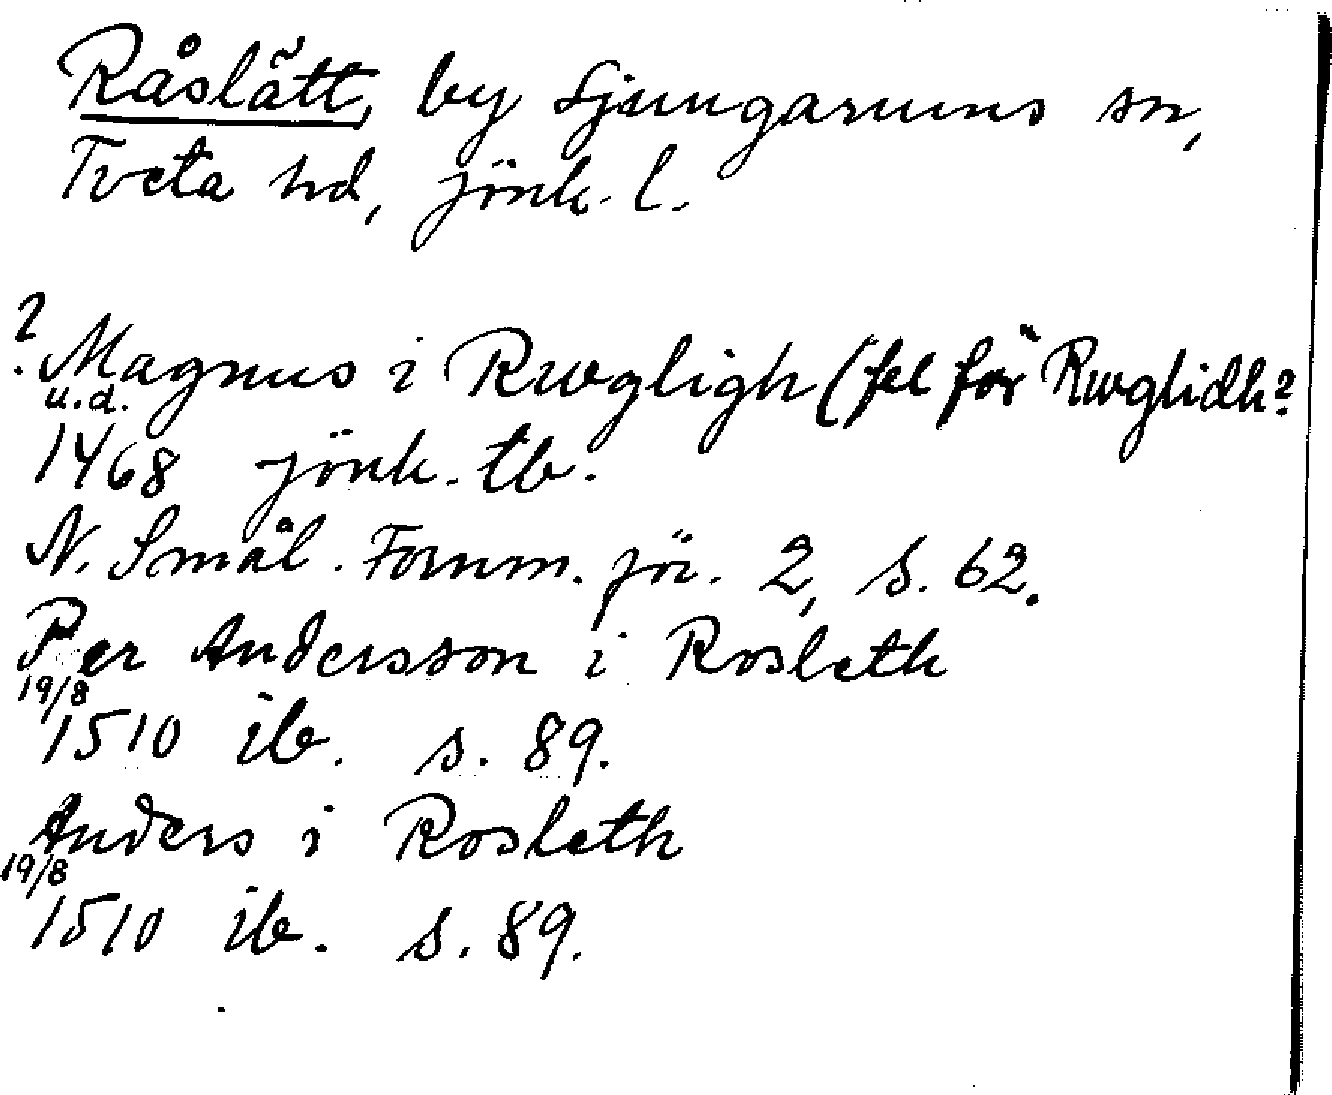 Råslätt, by Ljungarums sn,
Tveta hd, Jönk. l.
? Magnus i Rwgligh (fel för Rwglidh?
u.d.
1468 Jönk. tb.
N. Smål. Fornm. för. 2, s. 62.
Per Andersson i Rosleth
19/8
1510 ib. s. 89.
Anders i Rosleth
19/8
1510 ib. s. 89.